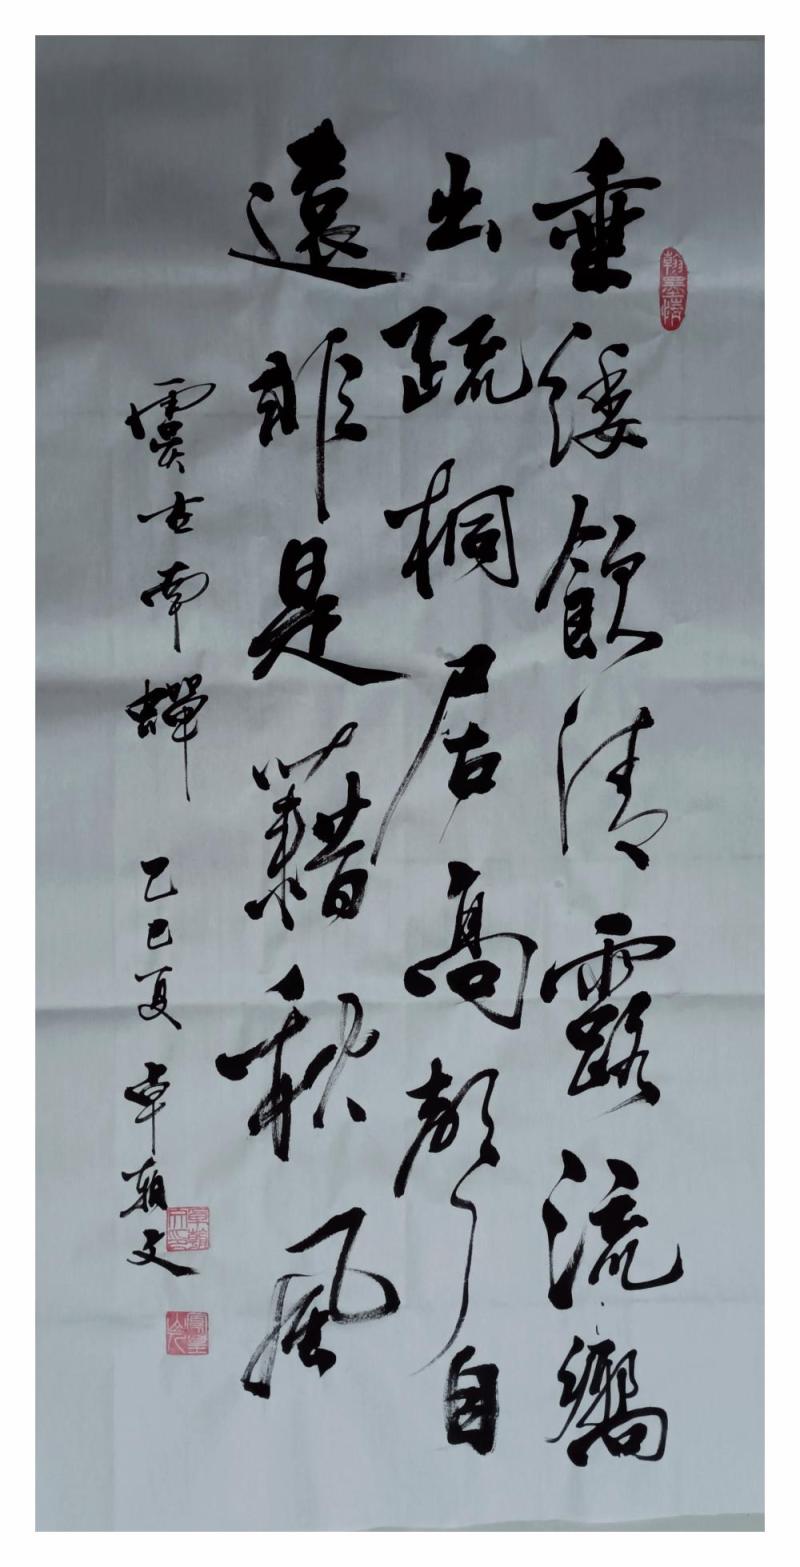 垂緌飲清露流響
出疏桐居高聲自
遠非是藉秋風
虞世南蟬 乙巳夏 卓朝文
翰墨情